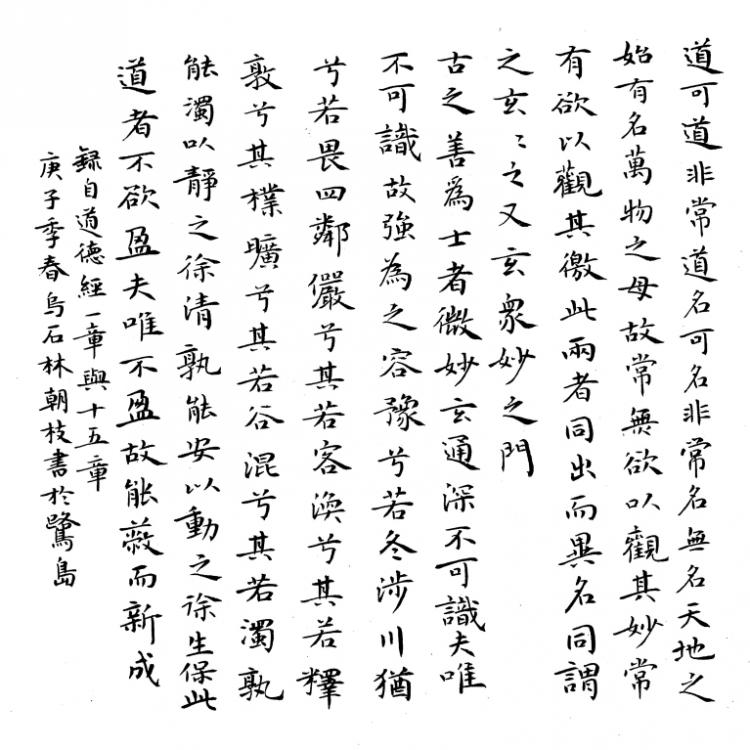 道可道非常道名可名非常名無名天地之
始有名萬物之母故常無欲以觀其妙常
有欲以觀其徼此兩者同出而異名同謂
之玄〻之又玄衆妙之門
古之善爲士者微妙玄通深不可識夫唯
不可識故強為之容豫兮若冬涉川猶
兮若畏四鄰儼兮其若客渙兮其若釋
敦兮其樸曠兮其若谷混兮其若濁孰
能濁以靜之徐清孰能安以動之徐生保此
道者不欲盈夫唯不盈故能蔽而新成
録自道德經一章與十五章
庚子季春烏石林朝枝書於鷺島